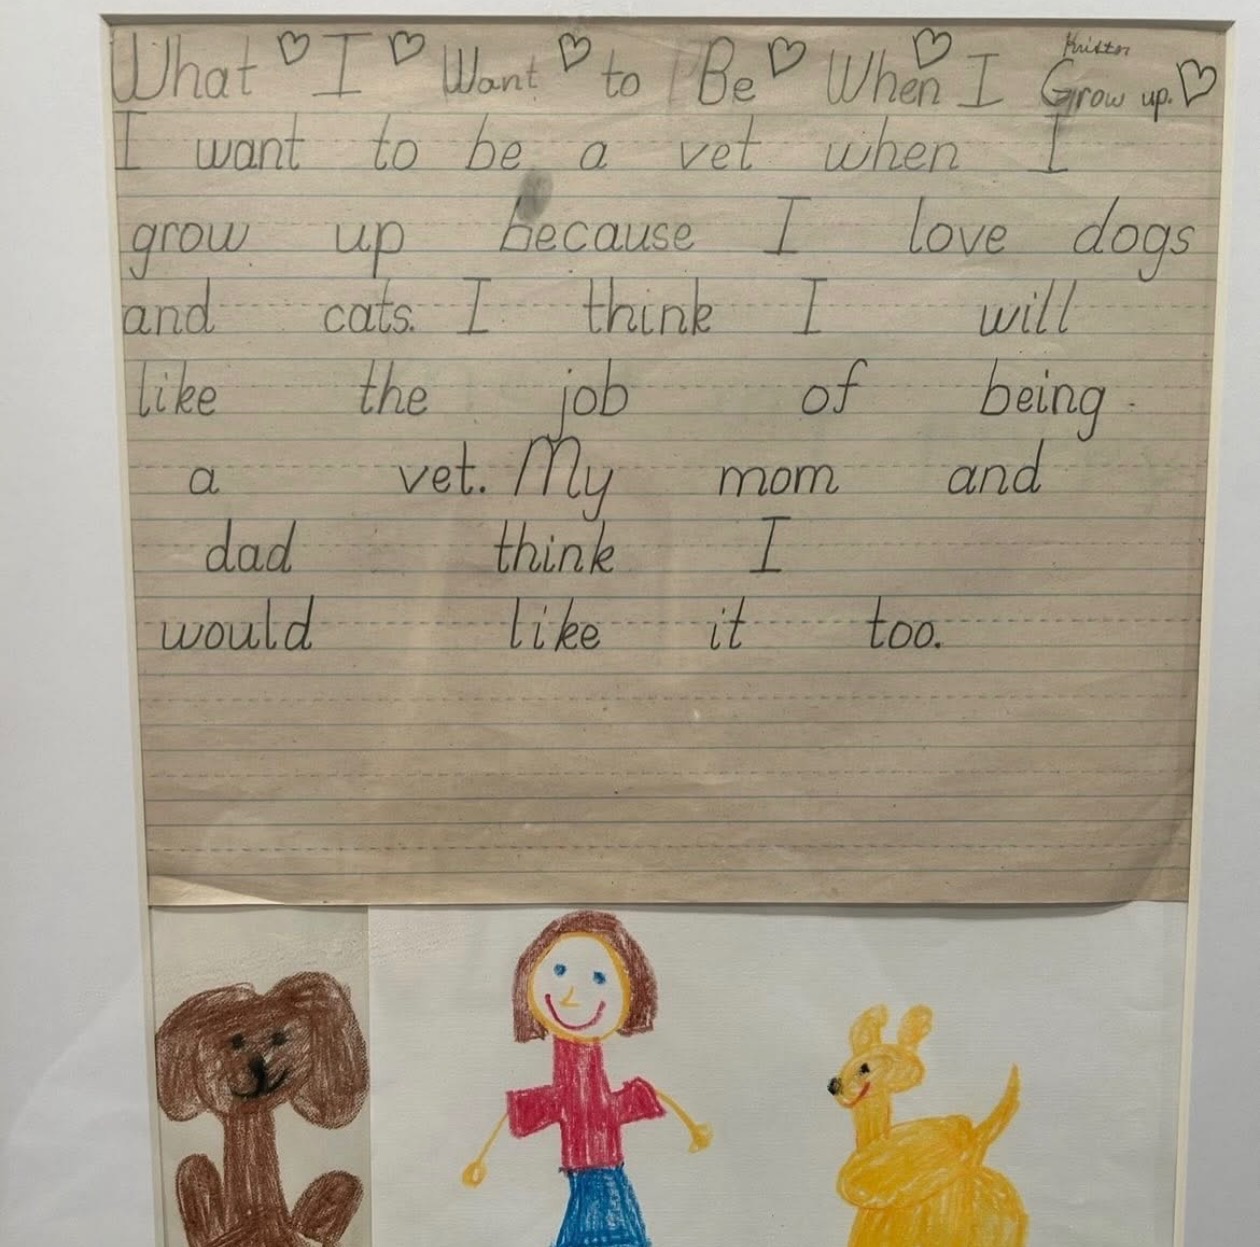 What I Want to Be When I Grow up.
I want to be a vet when I
grow up because I love dogs
and cats. I think I will
like the job of being
a vet. My mom and
dad think I
would like it too.